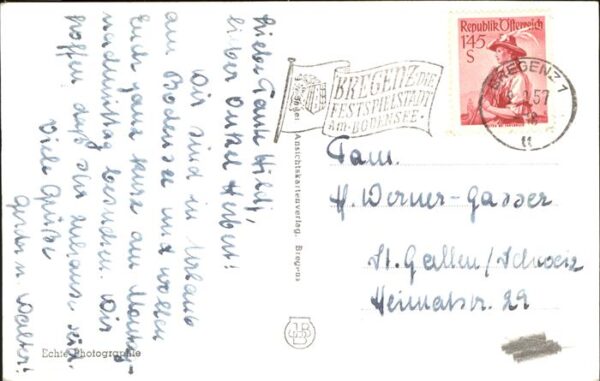 Liebe Tante Hildi,
lieber Onkel Herbert!
Wir sind in Urlaub
am Bodensee und wollen
Euch ganz kurz am Montag-
nachmittag besuchen. Wir
hoffen daß Ihr zuhause seid.
Viel Grüße
Gerti u. Walter!
Echte Photographie
Ansichtskartenverlag, Bregenz
BREGENZ DIE
FESTSPIELSTADT
AM BODENSEE
Republik Österreich
1'45
S
BREGENZ 1
57
tt
Fam.
H. Werner-Gasser
St. Gallen/Schweiz
Heimatstr. 29